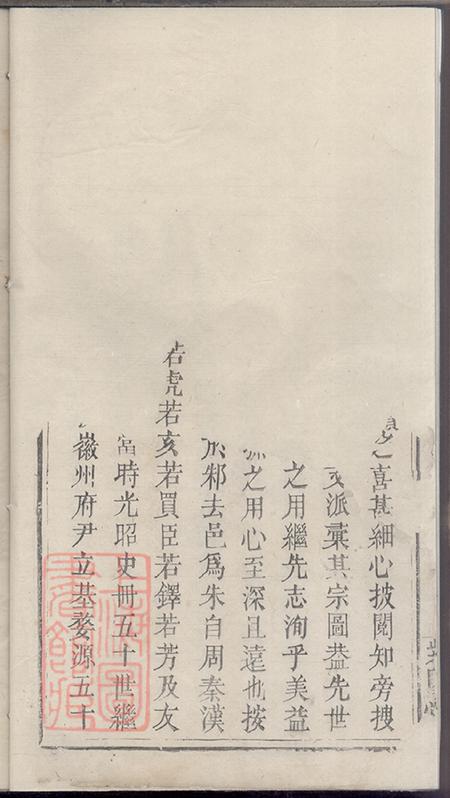 喜甚細心披閱知旁搜
派彙其宗圖益先世
之用繼先志洵乎美益
之用心至深且遠也按
邾去邑為朱自周秦漢
若虎若亥若買臣若鐸若芳及友
當時光昭史冊五十世繼
徽州府尹立基婺源五十